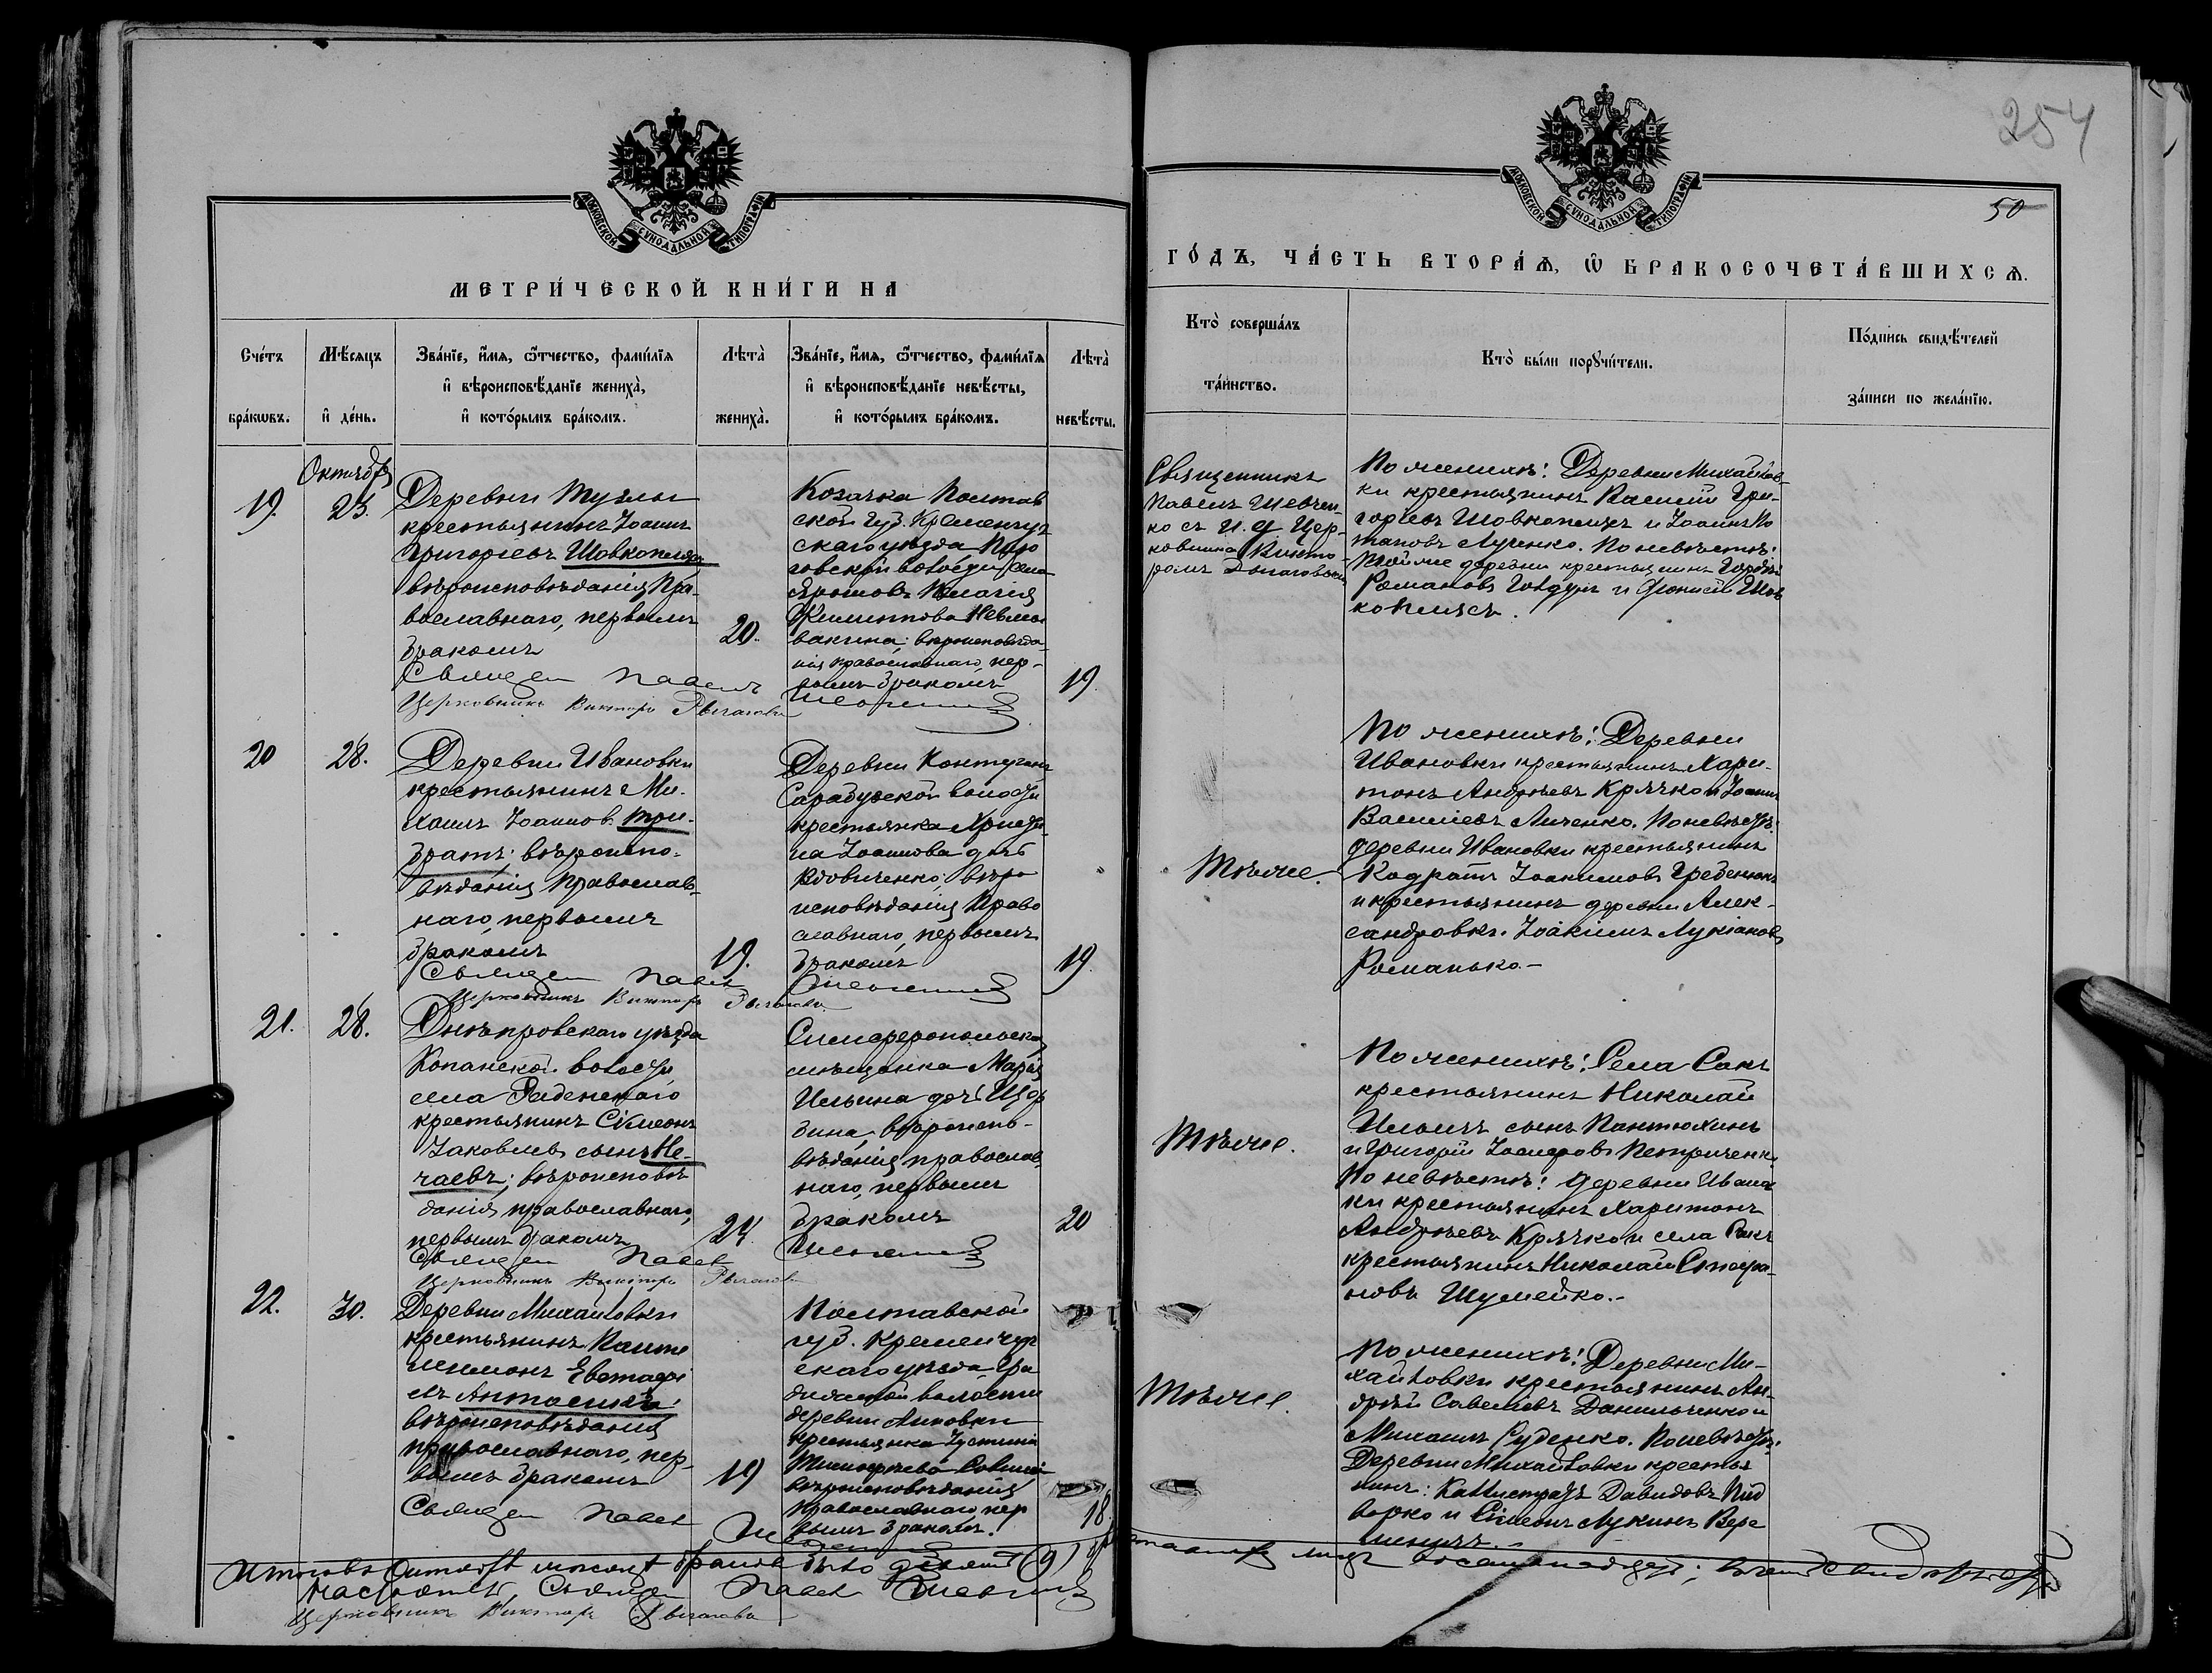 254
50
МОСКОВСКОЙ СѴНОДАЛЬНОЙ ТИПОГРАФІИ
МОСКОВСКОЙ СѴНОДАЛЬНОЙ ТИПОГРАФІИ
МЕТРИ́ЧЕСКОЙ КНИ́ГИ НА
ГО́ДЪ, ЧА́СТЬ ВТОРА́Ѧ, Ѡ҆ БРАКОСОЧЕТА́ВШИХСѦ.
Сче́тъ
бра́кѡвъ.
Мѣ́сѧцъ
и҆ де́нь.
Зва́нїе, и҆́мѧ, ѻ҆́тчество, фами́лїѧ
и҆ вѣроисповѣ́данїе жениха̀,
и҆ кото́рымъ бра́комъ.
Лѣта̀
жениха̀.
Зва́нїе, и҆́мѧ, ѻ҆́тчество, фами́лїѧ
и҆ вѣроисповѣ́данїе невѣ́сты,
и҆ кото́рымъ бра́комъ.
Лѣта̀
невѣ́сты.
Кто̀ соверша́лъ
та́инство.
Кто̀ бы́ли порꙋчи́тели.
По́дпись свидѣ́телей
за́писи по жела́нїю.
Октябрь
19.
23.
Деревни Тузлы
крестьянинъ Іоаннъ
Григоріевъ Шовкоплясъ
вѣроисповѣданія Пра-
вославнаго, первымъ
бракомъ
20.
Козачка Полтав
ской Губ. Кременчуг
скаго уѣзда
волости села
Пелагія
Филиппова
вѣроисповѣда-
нія православнаго, пер-
вымъ бракомъ
19
Священникъ
Павелъ Шевчен-
ко съ И. д. Цер-
ковника Викто-
ромъ
По женихѣ: Деревни Михайлов-
ки крестьянинъ Василій Гри-
горіевъ Шовкоплясъ и Іоаннъ По
таповъ Луценко. По невѣстѣ:
Той же деревни крестьянинъ
Романовъ и Шов
коплясъ.
Священ Павелъ Шевченко
Церковникъ Викторъ
20
28.
Деревни Ивановки
крестьянинъ Ми-
хаилъ Іоанновъ Три-
братъ; вѣроиспо-
вѣданія Православ-
наго, первымъ
бракомъ
19.
Деревни Контуганъ
Сарабузской волости
крестьянка Христи-
на Іоаннова дочь
Вдовиченко; вѣро
исповѣданія Право
славнаго, первымъ
бракомъ
19
Тѣ же.
По женихѣ: Деревни
Ивановки крестьянинъ Хари-
тонъ Андреевъ Крячко и Іоаннъ
Василіевъ Личенко. По невѣстѣ:
деревни Ивановки крестьянинъ
Кодратъ Іоакимовъ Гребенюкъ
и крестьянинъ деревни Алек-
сандровки Іоакимъ Лукіановъ
Романько.-
Священ Павел Шевченко
Церковникъ Викторъ
21.
28.
Днѣпровскаго уѣзда
Копанской волости
села Раденскаго
крестьянинъ Сімеонъ
Іаковлевъ сынъ Не-
чаевъ; вѣроисповѣ
данія православнаго,
первымъ бракомъ
24
Симферопольская
мѣщанка Марія
Ильина дочь Щер
бина, вѣроиспо-
вѣданія православ-
наго, первымъ
бракомъ
20
Тѣ же.
По женихѣ: Села Саки
крестьянинъ Николай
Ильинъ сынъ Пантюхинъ
и Григорій Іосифовъ Петриченко.
По невѣстѣ: деревни Иванов
ки крестьянинъ Харитонъ
Андреевъ Крячко и села Саки
крестьянинъ Николай Стефа-
новъ Шумейко.-
Священ Павел Шевченко
Церковникъ Викторъ
22.
30.
Деревни Михайловки
крестьянинъ Панте
леимонъ Евстафі
евъ Антосикъ;
вѣроисповѣданія
православнаго, пер-
вымъ бракомъ
19
Полтавской
губ. Кременчуг
скаго уѣзда Гра
дижской волости
деревни Липовки
крестьянка Іустина
Тимофеева
вѣроисповѣданія
православнаго, пер
вымъ бракомъ.
18.
Тѣ же.
По женихѣ: Деревни Ми-
хайловки крестьянинъ Ан-
дрей Савеліевъ Данильченко и
Михаилъ Руденко. По невѣстѣ:
Деревни Михайловки крестья
нинъ: Каллистратъ Давидовъ Пид
ворко и Сімеонъ Лукинъ Вере
Священ Павел Шевченко
Итого въ Октябрѣ мѣсяцѣ браковъ было девять (9)
Священ Павел Шевченко
Церковникъ Викторъ